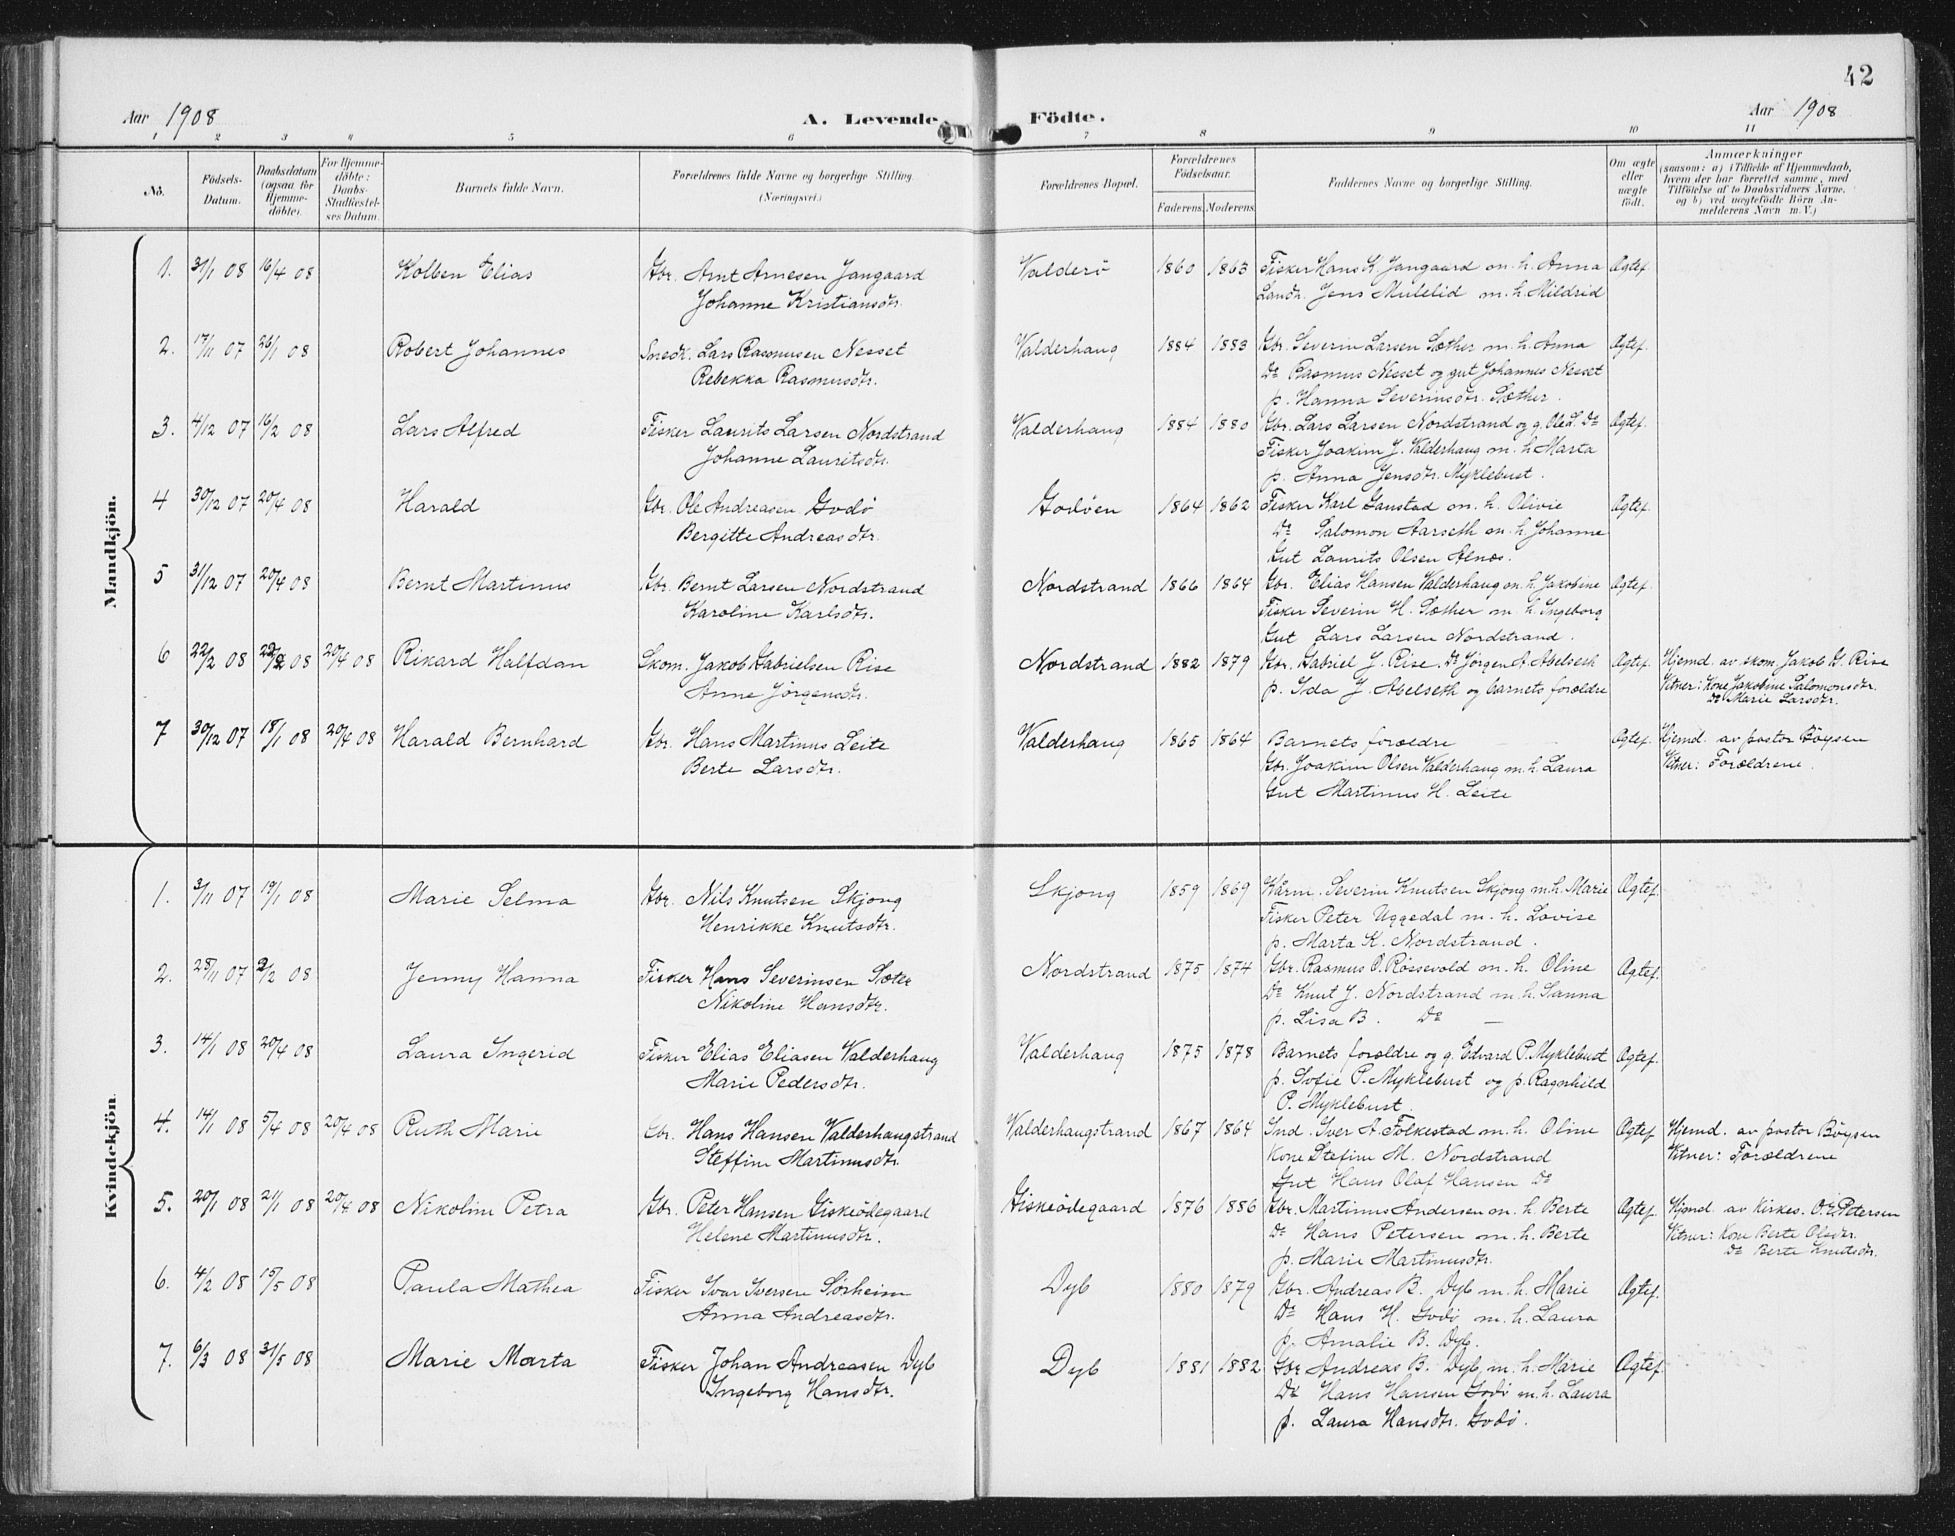 42
Aar 1908
A. Levende
Födte.
Aar 1908
1 2 3 4 5 6 7 8 9 10 11
No.
Födsels-
Datum.
Daabsdatum
(ogsaa for
Hjemme-
döbte).
For Hjemme-
döbte:
Daabs-
Stadfæstel-
ses Datum.
Barnets fulde Navn.
Forældrenes fulde Navne og borgerlige Stilling.
(Næringsvei.)
Forældrenes Bopæl.
Forældrenes
Födselsaar.
Faderens. Moderens.
Faddernes Navne og borgerlige Stilling.
Om ægte
eller
uægte
födt.
Anmærkninger
(saasom: a) i Tilfælde af Hjemmedaab,
hvem der har forrettet samme, med
Tilföielse af to Daabsvidners Navne,
og b) ved uægtefödte Börn An-
melderens Navn m. V.)
Mandkjön.
1. 31/1 08 16/4 08 Kolben Elias Gbr. Arnt Arnesen Jangaard Valderö 1860 1863 Fisker Hans K. Jangaard m. h. Anna Ægtef.
Johanne Kristiansdtr. Landh. Jens Mulelid m. h. Mildrid
2. 17/11 07 26/1 08 Robert Johannes Snedk. Lars Rasmusen Nesset Valderhaug 1884 1883 Gbr. Severin Larsen Sæther m. h. Anna Ægtef.
Rebekka Rasmusdtr. Do Rasmus Nesset og gut Johannes Nesset
p. Hanna Severinsdtr. Sæther.
3. 4/12 07 16/2 08 Lars Alfred Fisker Laurits Larsen Nordstrand Valderhaug 1884 1880 Gbr. Lars Larsen Nordstrand og g. Ole L. Do Ægtef.
Johanne Lauritsdtr. Fisker Joakim J. Valderhaug m. h. Marta
p. Anna Jensdtr. Myklebust.
4 30/12 07 20/4 08 Harald Gbr. Ole Andreasen Godø Godöen 1864 1862 Fisker Karl Ganstad m. h. Olivie Ægtef.
Bergitte Andreasdtr. Do Salomon Aarseth m. h. Johanne
Gut Laurits Olsen Alnæs.
5 31/12 07 20/4 08 Bernt Martinus Gbr. Bernt Larsen Nordstrand Nordstrand 1866 1864 Gbr. Elias Hansen Valderhaug m. h. Jakobine Ægtef.
Karoline Karlsdtr. Fisker Severin H. Sæther m. h. Ingeborg
Gut Lars Larsen Nordstrand.
6 22/2 08 22/2 08 20/4 08 Rikard Halfdan Skom. Jakob Gabrielsen Rise Nordstrand 1882 1879 Gbr. Gabriel J. Rise. Do Jørgen A. Abelseth Ægtef. Hjemd. av skom. Jakob G. Rise
Anne Jørgensdtr. p. Ida J. Abelseth og barnets forældre Vitner: Kone Jakobine Salomonsdtr.
Do Marie Larsdtr.
7 30/12 07 18/1 08 20/4 08 Harald Bernhard Gbr. Hans Martinus Leite Valderhaug 1865 1864 Barnets forældre Ægtef. Hjemd. av pastor Böysen
Berte Larsdtr. Gbr. Joakim Olsen Valderhaug m. h. Laura Vitner: Forældrene.
Gut Martinus H. Leite
Kvindekjön.
1. 3/11 07 19/1 08 Marie Selma Gbr. Nils Knutsen Skjong Skjong 1859 1869 Kårm. Severin Knutsen Skjong m. h. Marie Ægtef.
Henrikke Knutsdtr. Fisker Peter Uggedal m. h. Lovise
p. Marta K. Nordstrand.
2. 28/11 07 2/2 08 Jenny Hanna Fisker Hans Severinsen Sæter Nordstrand 1875 1874 Gbr. Rasmus O. Røssevold m. h. Oline Ægtef.
Nikoline Hansdtr. Do Knut J. Nordstrand m. h. Sanna
p. Lisa B. Do —
3. 14/1 08 20/4 08 Laura Ingerid Fisker Elias Eliasen Valderhaug Valderhaug 1875 1878 Barnets forældre og g. Edvard P. Myklebust Ægtef.
Marie Pedersdtr. p. Sofie P. Myklebust og p. Ragnhild
P. Myklebust
4. 14/1 08 5/4 08 20/4 08 Ruth Marie Gbr. Hans Hansen Valderhaugstrand Valderhaugstrand 1867 1864 Snd. Iver A. Folkestad m. h. Oline Ægtef. Hjemd. av pastor Böysen
Steffine Martinusdtr. Kone Stefine M. Nordstrand Vitner: Forældrene
Gut Hans Olaf Hansen Do
5. 20/1 08 21/1 08 20/4 08 Nikoline Petra Gbr. Peter Hansen Giskeödegaard Giskeödegaard 1876 1886 Gbr. Martinus Andersen m. h. Berte Ægtef. Hjemd. av Kirkes. O. E. Petersen
Helene Martinusdtr. Do Hans Petersen m. h. Berte Vitner: Kone Berte Olsdtr.
p. Marie Martinusdtr. Do Berte Knutsdtr.
6. 4/2 08 15/5 08 Paula Mathea Fisker Ivar Iversen Sørheim Dyb 1880 1879 Gbr. Andreas B. Dyb m. h. Marie Ægtef.
Anna Andreasdtr. Do Hans H. Godø m. h. Laura
p. Amalie B. Dyb.
7. 6/3 08 31/5 08 Marie Marta Fisker Johan Andreasen Dyb Dyb 1881 1882 Gbr Andreas B. Dyb m. h. Marie Ægtef.
Ingeborg Hansdtr. Do Hans Hansen Godø m. h. Laura
p. Laura Hansdtr. Godø.